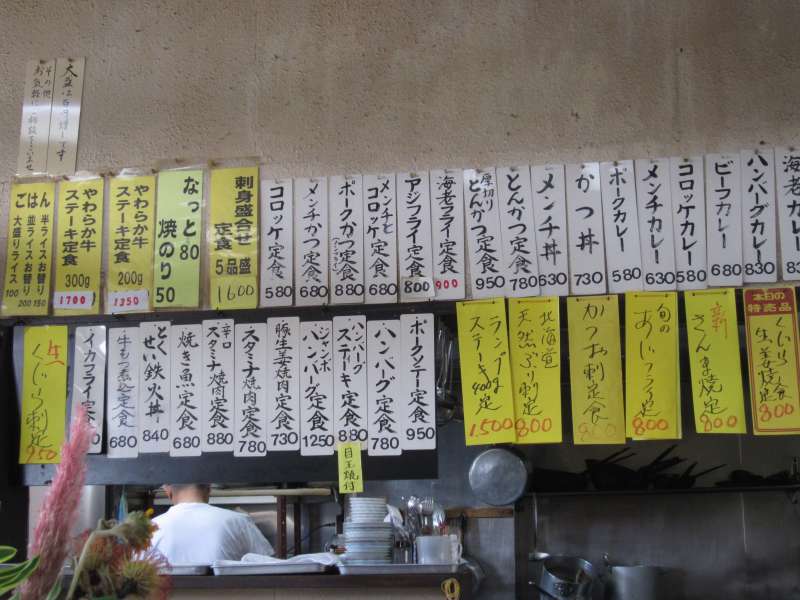 大盛は百円増しです
その他
お気軽にご相談下さいませ
ごはん
半ライスお替り
並ライスお替り
大盛りライス
100
200 150
やわらか牛
ステーキ定食
300g
1700
やわらか牛
ステーキ定食
200g
1350
なっと80
焼のり50
刺身盛合せ
定食
5品盛
1600
コロッケ定食
580
メンチかつ定食
680
ポークかつ定食
880
メンチと
コロッケ定食
680
アジフライ定食
800
海老フライ定食
900
厚切り
とんかつ定食
950
とんかつ定食
780
メンチ丼
630
かつ丼
730
ポークカレー
580
メンチカレー
630
コロッケカレー
580
ビーフカレー
680
ハンバーグカレー
830
海老カレー
830
生くじら刺定
950
イカフライ定食
680
牛もつ煮込定食
680
とくせい鉄火丼
840
焼き魚定食
680
辛口
スタミナ焼肉定食
880
スタミナ焼肉定食
780
豚生姜焼肉定食
730
ジャンボ
ハンバーグ定食
1250
ハンバーグ
ステーキ定食
880
ハンバーグ定食
780
ポークソテー定食
950
目玉焼付
ランプ
ステーキ400g定
1,500
北海道
天然ぶり刺定
800
かつお刺定食
800
旬の
あじフライ定
800
新
さんま焼定
800
本日の
特売品
くじら
生姜焼定
800